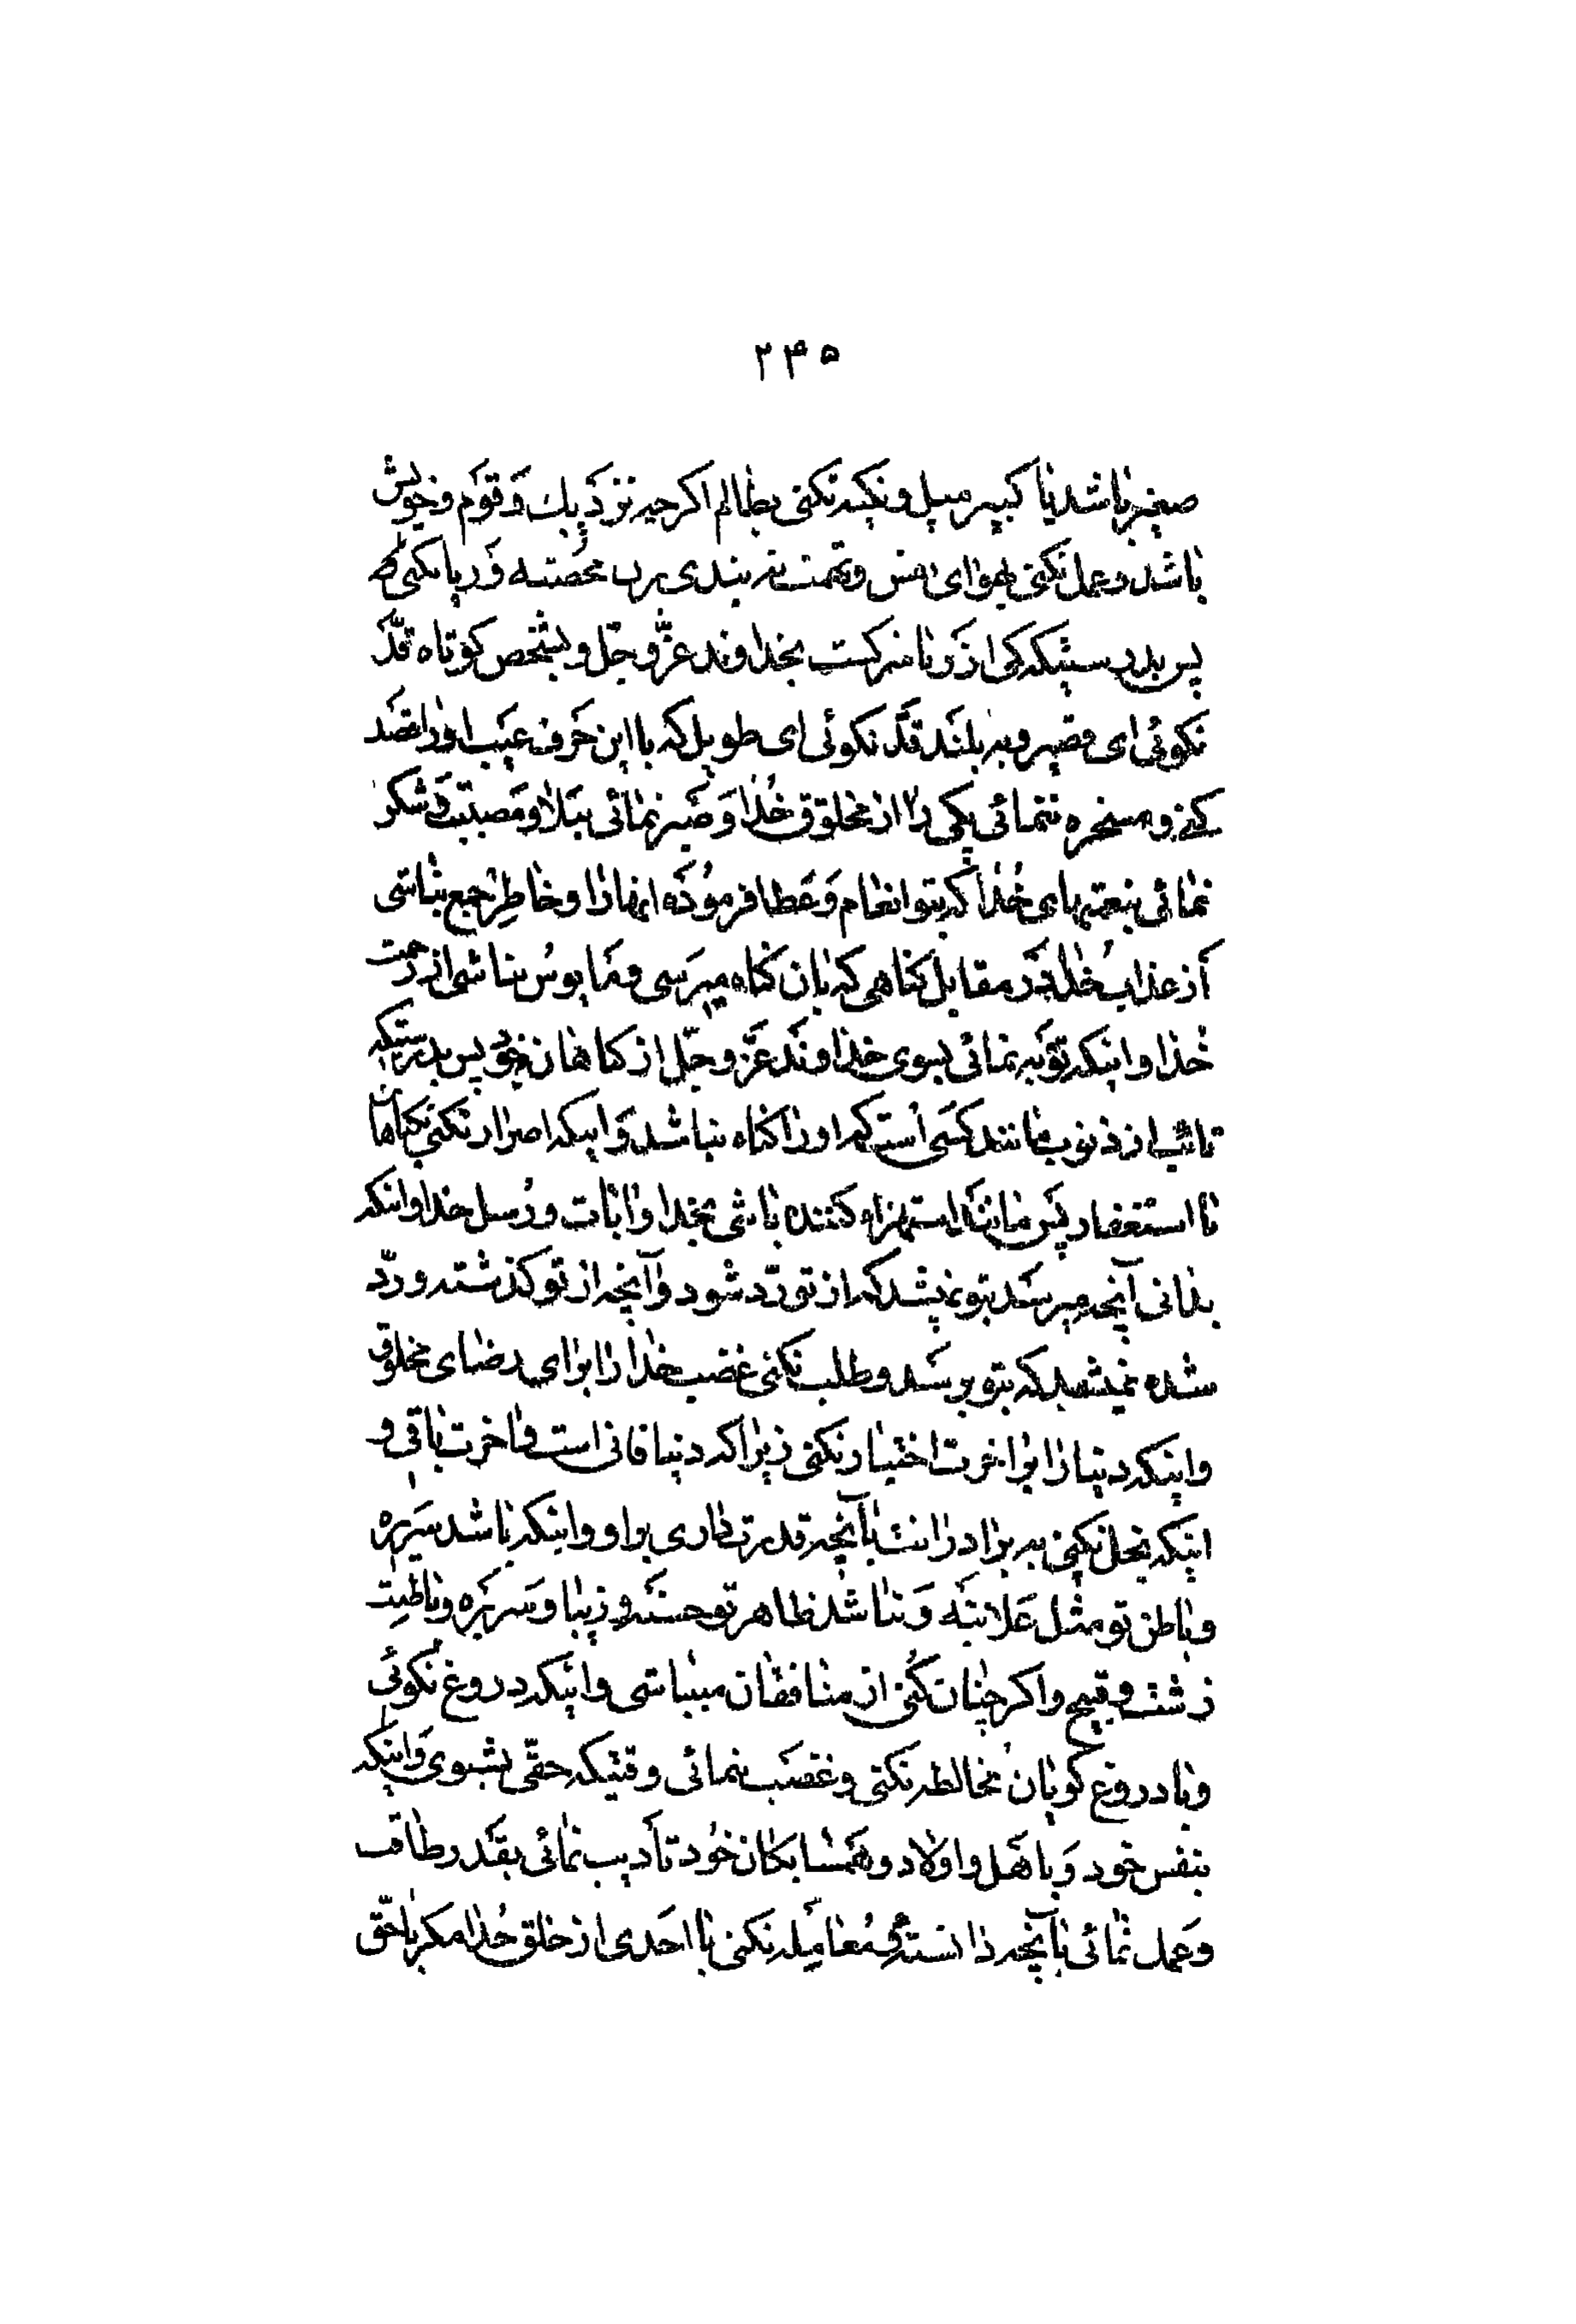 ۲۴۵
صغیر باشد یا کبیر میل و تکیه نکنی بظالم اکرچه نزدیك و قوم و خویش
باشد و عمل نکنی بهوای نفس و تهمت نه بندی بر محصنه و ریا نکنی که
پس بدرستیکه کمی از ریا شرکست بخداوند عزّ و جلّ و بشخص کوتاه قدّ
نکوئی ای قصیر و به بلند قدّ نکوئی ای طویل که با این حرف عیب او را قصد
کنی و مسخره ننمائی یکی را از مخلوق خدا و صبر نمائی ببلا و مصیبت و شکر
نمائی بنعمتهای خدا که بتو انعام و عطا فرموده انها را و خاطر جمع نباشی
از عذاب خدا در مقابل کناهی که بان کناه میرسی و مایوس نباشی از رحمت
خدا و اینکه توبه نمائی بسوی خداوند عزّ و جلّ از کناهان خود پس بدرستیکه
تائب از ذنوب مانند کسی است که او را کناه نباشد و اینکه اصرار نکنی بکناهان
با استغفار پس مانند استهزاء کننده باشی بخدا و ایات و رسل خدا و اینکه
بدانی آنچه میرسد بتو نمیشد که از تو ردّ شود و آنچه از تو کذشته و ردّ
شده نمیشد که بتو برسد و طلب نکنی غضب خدا را برای رضای مخلوق
و اینکه دنیا را بر اخرت اختیار نکنی زیرا که دنیا فانی است و اخرت باقی و
اینکه بخل نکنی به برادرانت بآنچه قدرت داری بر او و اینکه باشد سریره
و باطن تو مثل علانیه و نباشد ظاهر تو حسنه و زیبا و سریره و باطنت
زشت و قبیح و اکر چنان کنی از منافقان میباشی و اینکه دروغ نکوئی
و با دروغ کویان مخالطه نکنی و غضب ننمائی وقتیکه حقّی بشنوی و اینکه
بنفس خود و باهل و اولاد و همسایکان خود تأدیب نمائی بقدر طاقت
و عمل نمائی بآنچه دانستهٔ و معامله نکنی با احدی از خلق خدا مکر باحقّ